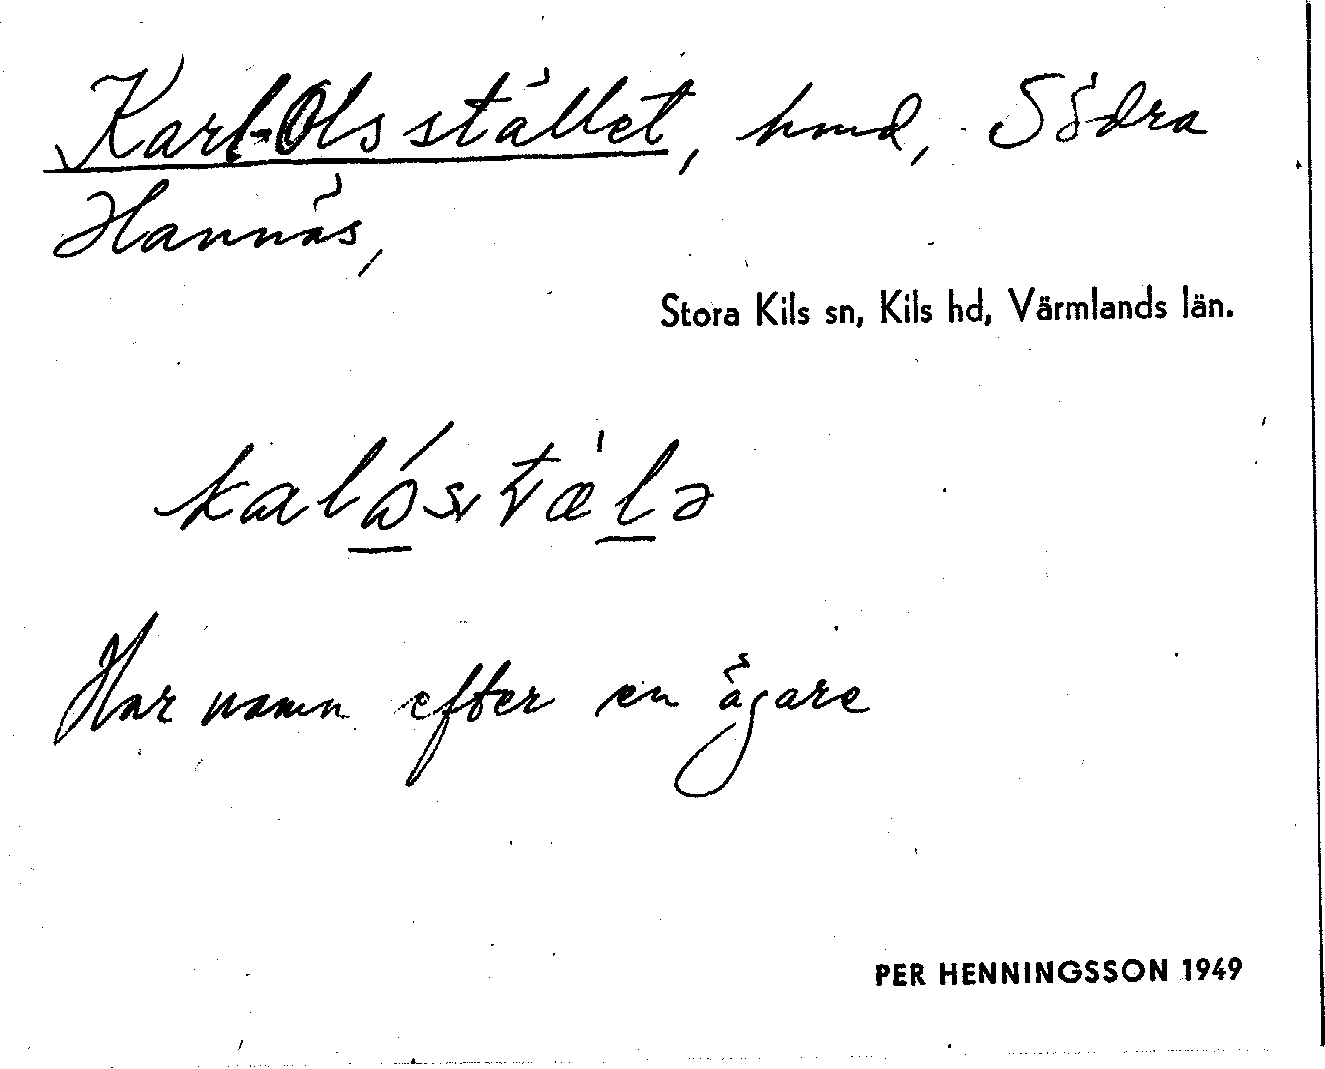 Karl-Ols stället, hmd, Södra
Hannäs,
Stora Kils sn, Kils hd, Värmlands län.
Har namn efter en ägare
PER HENNINGSSON 1949